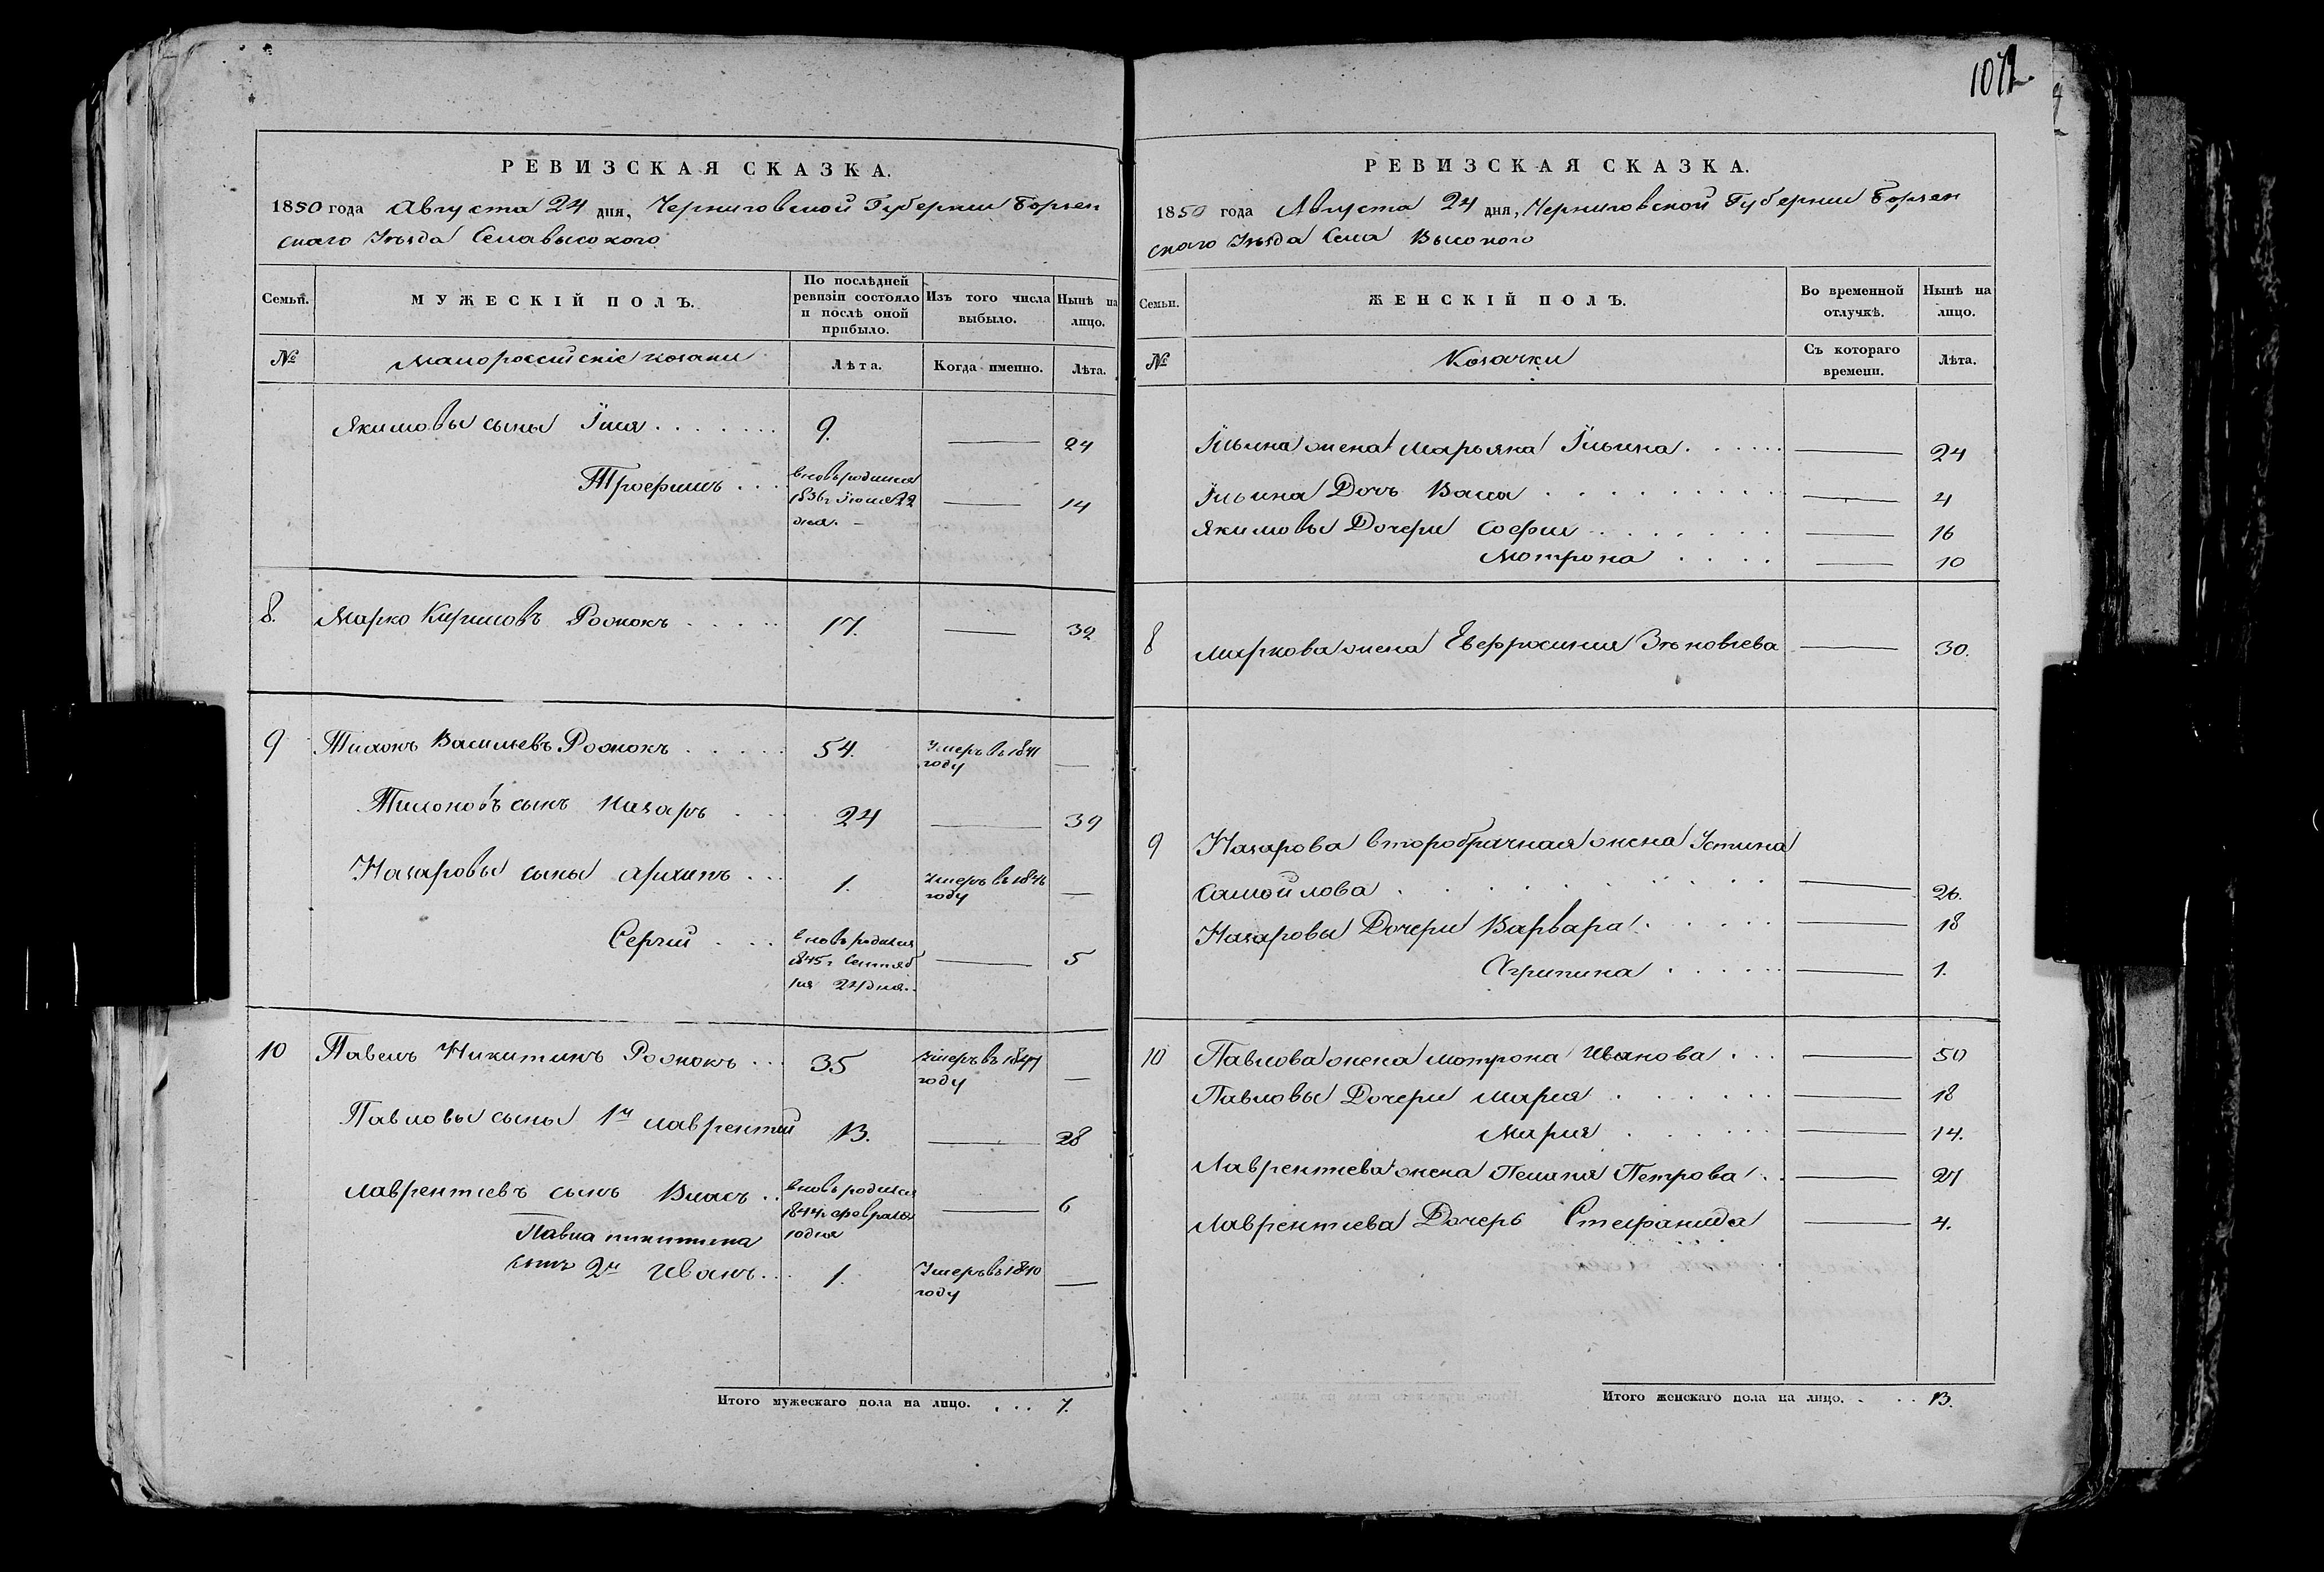 1071
РЕВИЗСКАЯ СКАЗКА.
1850 года Августа 24 дня, Черниговской Губернии Борзен
скаго Уѣзда Села Высокого
Семьи.
МУЖЕСКІЙ ПОЛЪ.
По послѣдней
ревизіи состояло
и послѣ оной
прибыло.
Изъ того числа
выбыло.
Нынѣ на
лицо.
№
Малороссийскіе козаки
Лѣта.
Когда именно.
Лѣта.
Якимовы сыны Илія . . . . . . . 9. — 24
Трофимъ . . . вновь родился
1836г Іюля 22
дня. — 14
8. Марко Кириловъ Рожокъ . . . . . 17. — 32
9 Тихонъ Васильевъ Рожокъ . . . . . 54. Умеръ въ 1841
году —
Тихоновъ сынъ Назаръ . . . 24 — 39
Назаровы сыны Архипъ . . . 1. Умеръ въ 1846
году —
Сергій . . . вновь родился
1845г Сентяб
ря 24 дня. — 5
10 Павелъ Никитинъ Рожокъ . . . 35 Умеръ въ
году —
Павловы сыны 1й Лаврентій 13. — 28
Лаврентіевъ сынъ Власъ . . вновь родился
1844г февраля
10 дня — 6
Павла Никитина
сынъ 2й Иванъ . . . 1. Умеръ въ 1840
году —
Итого мужескаго пола на лицо. . . . 7.
РЕВИЗСКАЯ СКАЗКА.
1850 года Августа 24 дня, Черниговской Губернии Борзен
скаго Уѣзда Села Высокого
Семьи.
ЖЕНСКІЙ ПОЛЪ.
Во временной
отлучкѣ.
Нынѣ на
лицо.
№
Козачки
Съ котораго
времени.
Лѣта.
Ильина жена Марьяна Ильина . . . . . — 24
Ильина Дочь Васса . . . . . . . . . — 4
Якимовы Дочери Софія . . . . . . . — 16
Мотрона . . . . — 10
8 Маркова жена Евфросинія Зѣновіева — 30.
9 Назарова второбрачная жена Устина
Самойлова . . . . . . . . . — 26.
Назаровы Дочери Варвара . . . . . — 18
Агрипина . . . . . — 1.
10 Павлова жена Мотрона Иванова . . . — 50
Павловы Дочери Марія . . . . . . — 18
Марія . . . . . — 14.
Лаврентіева жена Пелагія Петрова . . — 27
Лаврентіева Дочерь Стефанида — 4.
Итого женскаго пола на лицо. . . . 13.